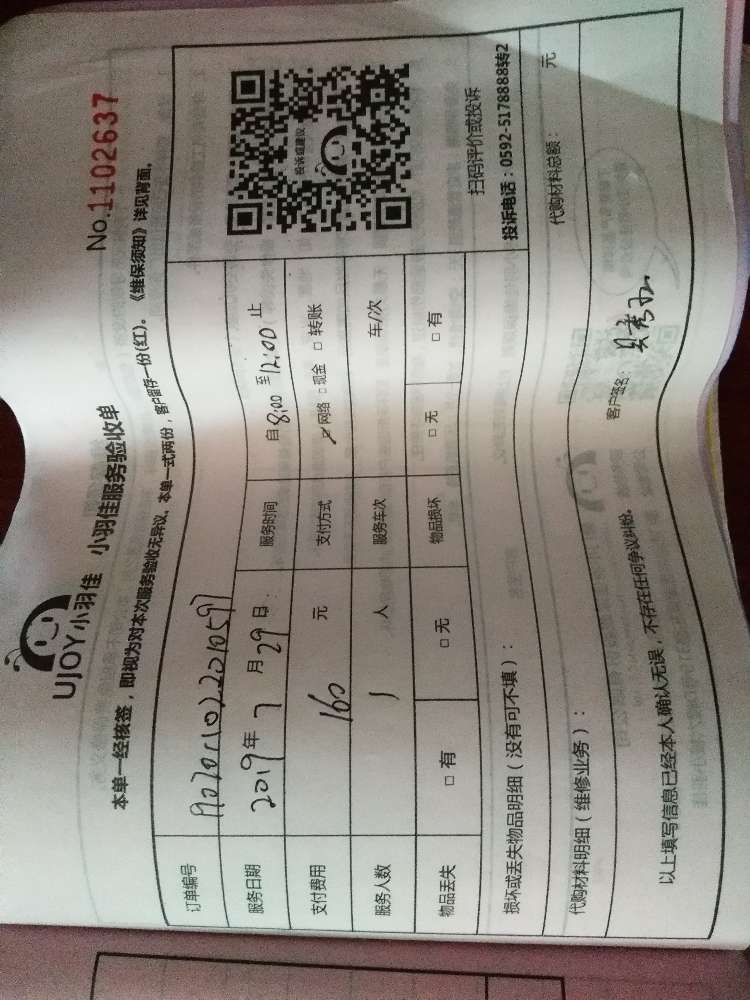 UJOY小羽佳 小羽佳服务验收单 No.1102637
本单一经核签，即视为对本次服务验收无异议、本单一式两份，客户留存一份(红)。《维保须知》详见背面。
订单编号
服务日期 2019年7月29日： 服务时间 自8:00至12:00止
支付费用 160 元 支付方式 ☑网络 □现金 □转账
服务人数 1 人 服务车次 车/次
物品丢失 □有 □无 物品损坏 □无 □有
投诉或建议
扫码评价或投诉
投诉电话：0592-5178888转2
损坏或丢失物品明细（没有可不填）：
代购材料明细（维修业务）： 代购材料总额： 元
以上填写信息已经本人确认无误，不存在任何争议纠纷。 客户签名：